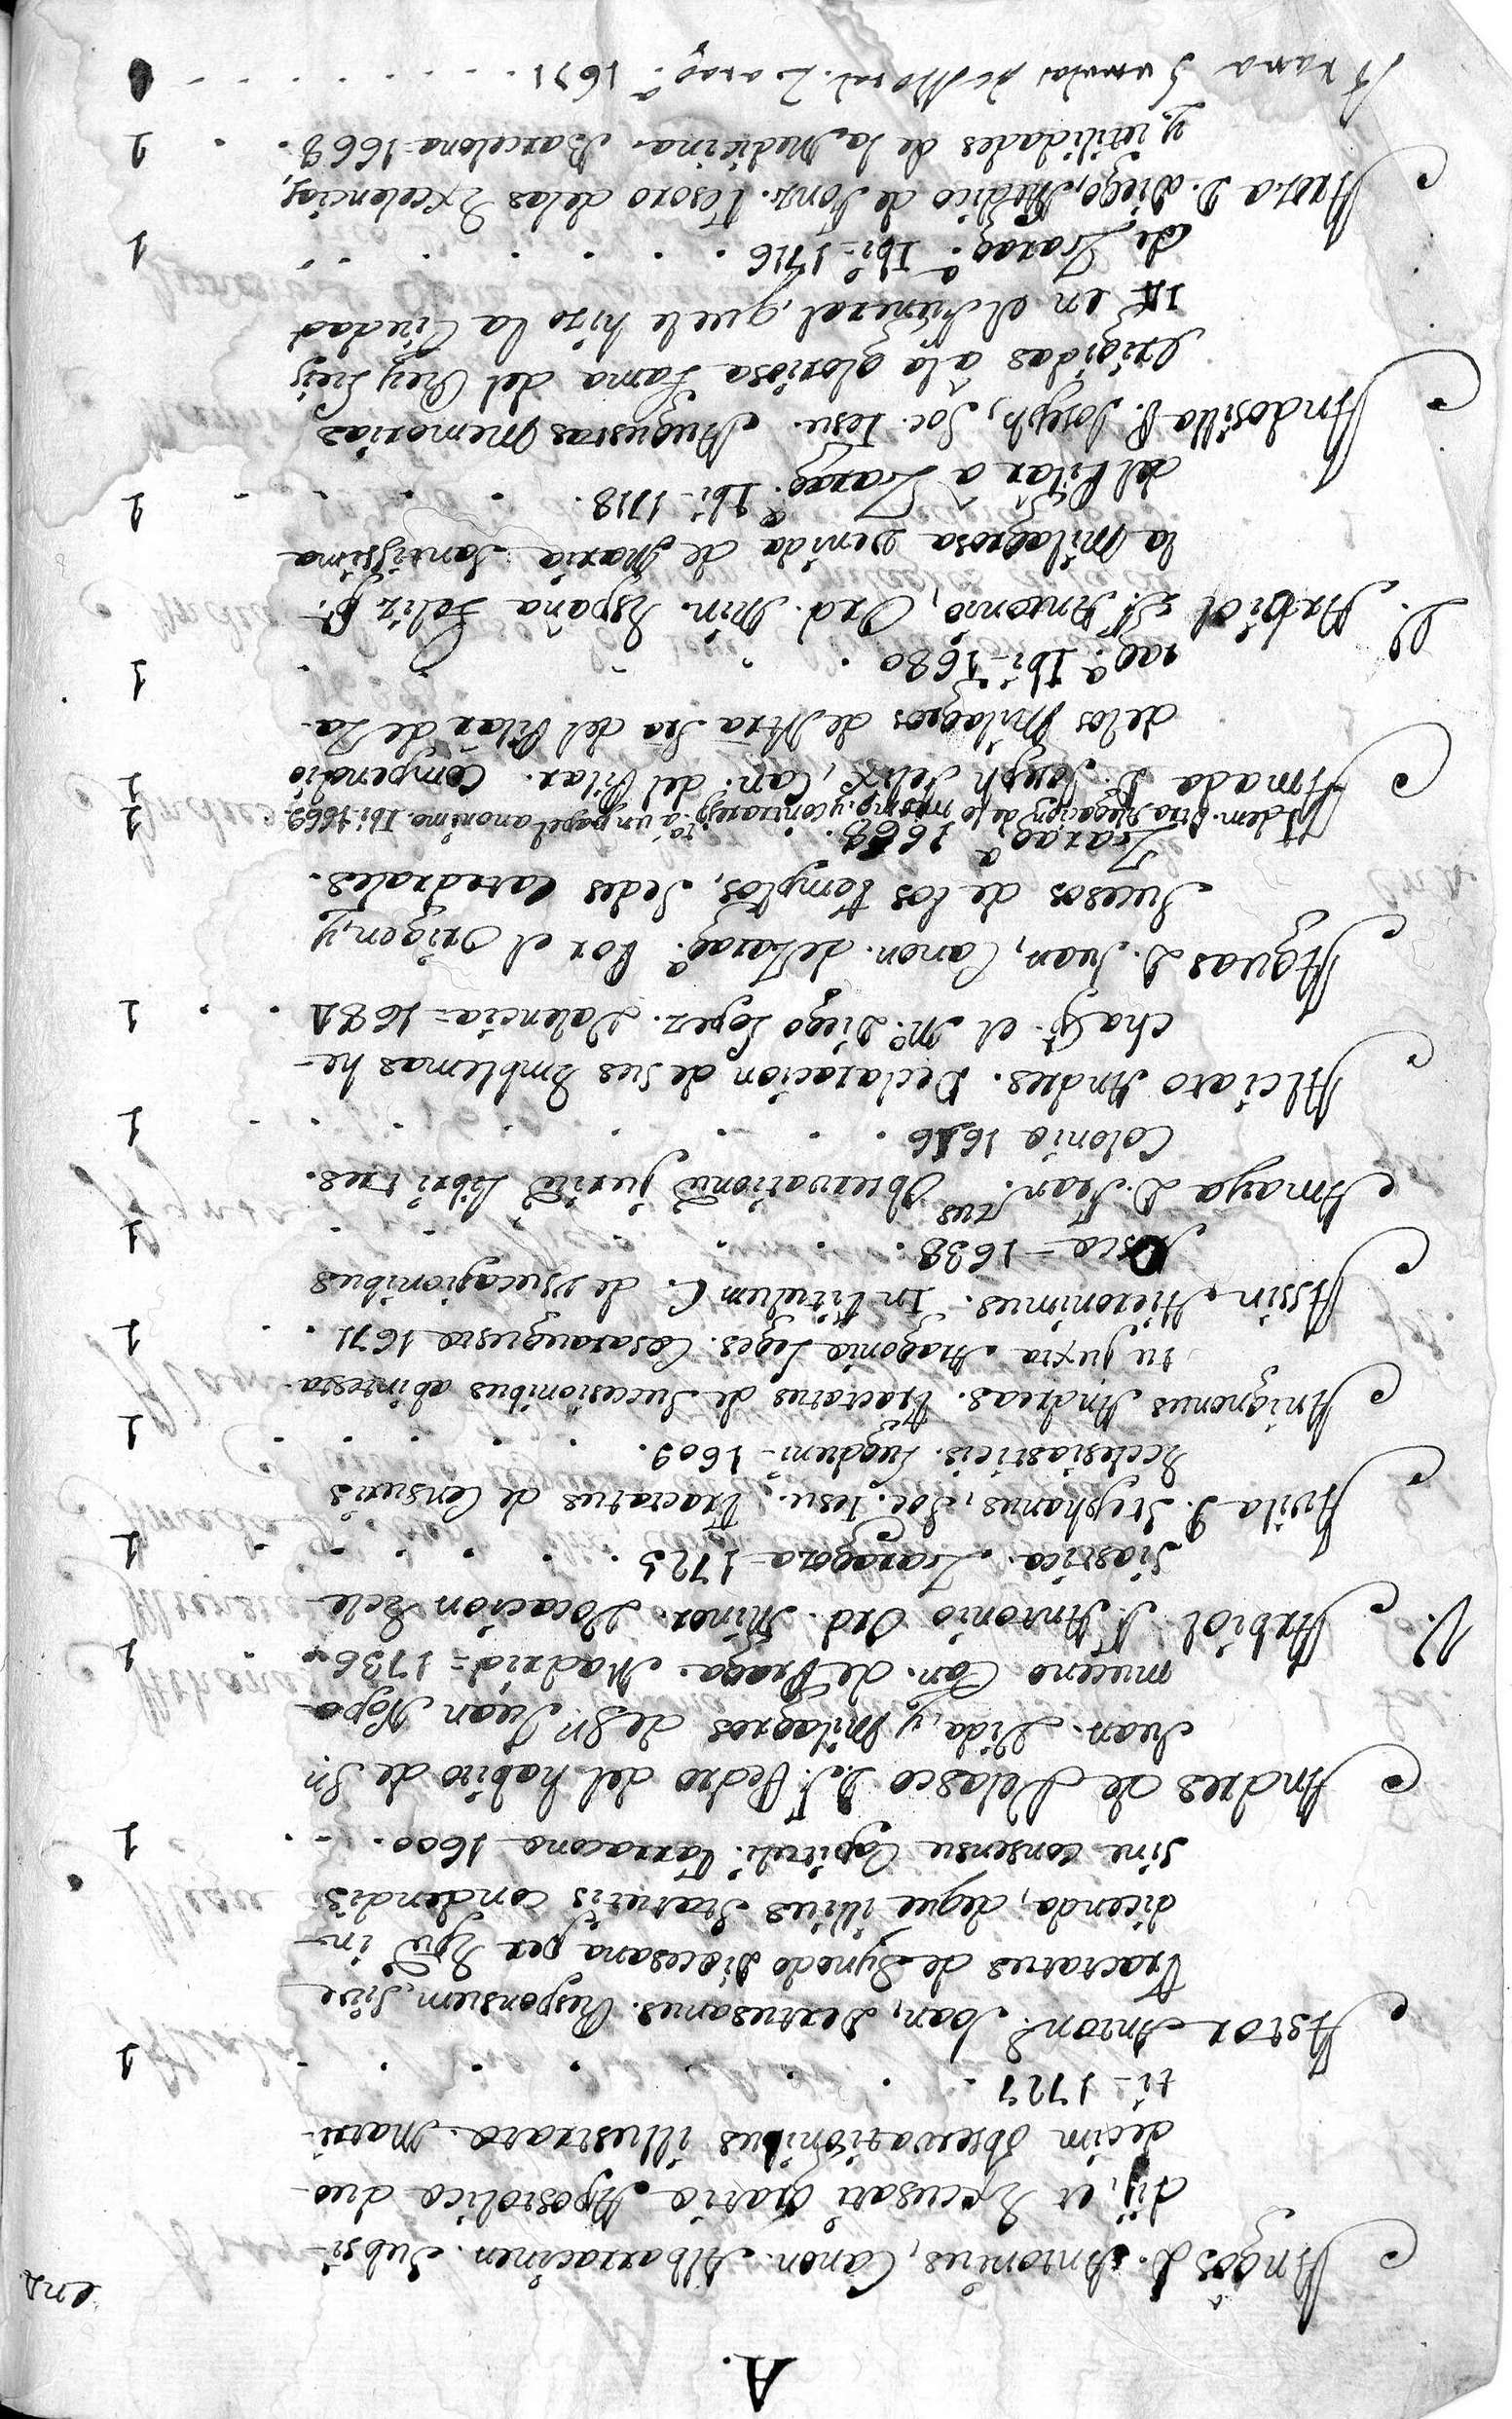 A.
en 4º
Angòs D. Antonius, Canon. Albarracinen. Subsi-
dij, et Excusati Gratia Apostolica duo-
decim observationibus illustrata. Matri-
ti - 1727 . . . . . . 1
Astor Anton.s Joan, Dertusanus. Responsum, sive
Tractatus de Synodo Diocesana per Epũ in-
dicenda, deque illius Statutis condendis
sine consensu Capituli. Tarracone 1600. . . 1
Andres de Velasco D. F. Pedro del habito de Sn.
Juan. Vida, y Milagros de Sn. Juan Nepo-
muceno Can. de Praga. Madrid = 1736. . 1
V. Arbiol F. Antonio Ord. Minor. Vocacion Ecle-
siastica. Zaragoza - 1725 . . . . . 1
Avila P. Stephanus, Soc. Iesu. Tractatus de Censuris
Ecclesiasticis. Lugduni - 1609. . . . . 1
Aviñonus Andreas. Tractatus de Succesionibus abintesta-
tu juxta Aragonia Leges. Cesaraugusta 1671 . . 1
Assin. Hieronimus. In titulum C. de usucapionibus
Osca - 1638. . . . . . 1
Amaya D. Fran.cus Observationũ juris Libri tres.
Colonia 1616 . . . . . . 1
Alciato Andres. Declaracion de sus Emblemas he-
cha p.r el M.o Diego Lopez. Valencia = 1684 . . 1
Aguas D. Juan, Canon. de Zarag.a Por el Origen, y
Sucesos de los Templos, Sedes Catedrales.
Zarag.a 1668 . . . 1
Idem. Otra Alegacion de lo mismo, y contraresp.ta à un papel anonimo. Ibi. 1669. 1
Amada D. Joseph Felix, Can. del Pilar. Compendio
de los Milagros de Ntra Sra del Pilar de Za-
rag.a Ibi - 1680 . . . . . 1
V. Arbiol F. Antonio, Ord. Min. España Feliz p.r
la Milagrosa venida de Maria Santissima
del Pilar a Zarag.a Ibi - 1718. . . . . 1
Andosilla P. Joseph, Soc. Iesu. Augustas Memorias
Erigidas à la gloriosa Fama del Rey Luis
14 en el funeral, que le hizo la Ciudad
de Zarag.a Ibi - 1716 . . . . . 1
Aroza D. Diego, Medico de Tesoro de las Excelencias,
y utilidades de la Medicina. Barcelona 1668. . 1
Arana Sumulas de Moral. Zarag.a 1671 . . . . . 1